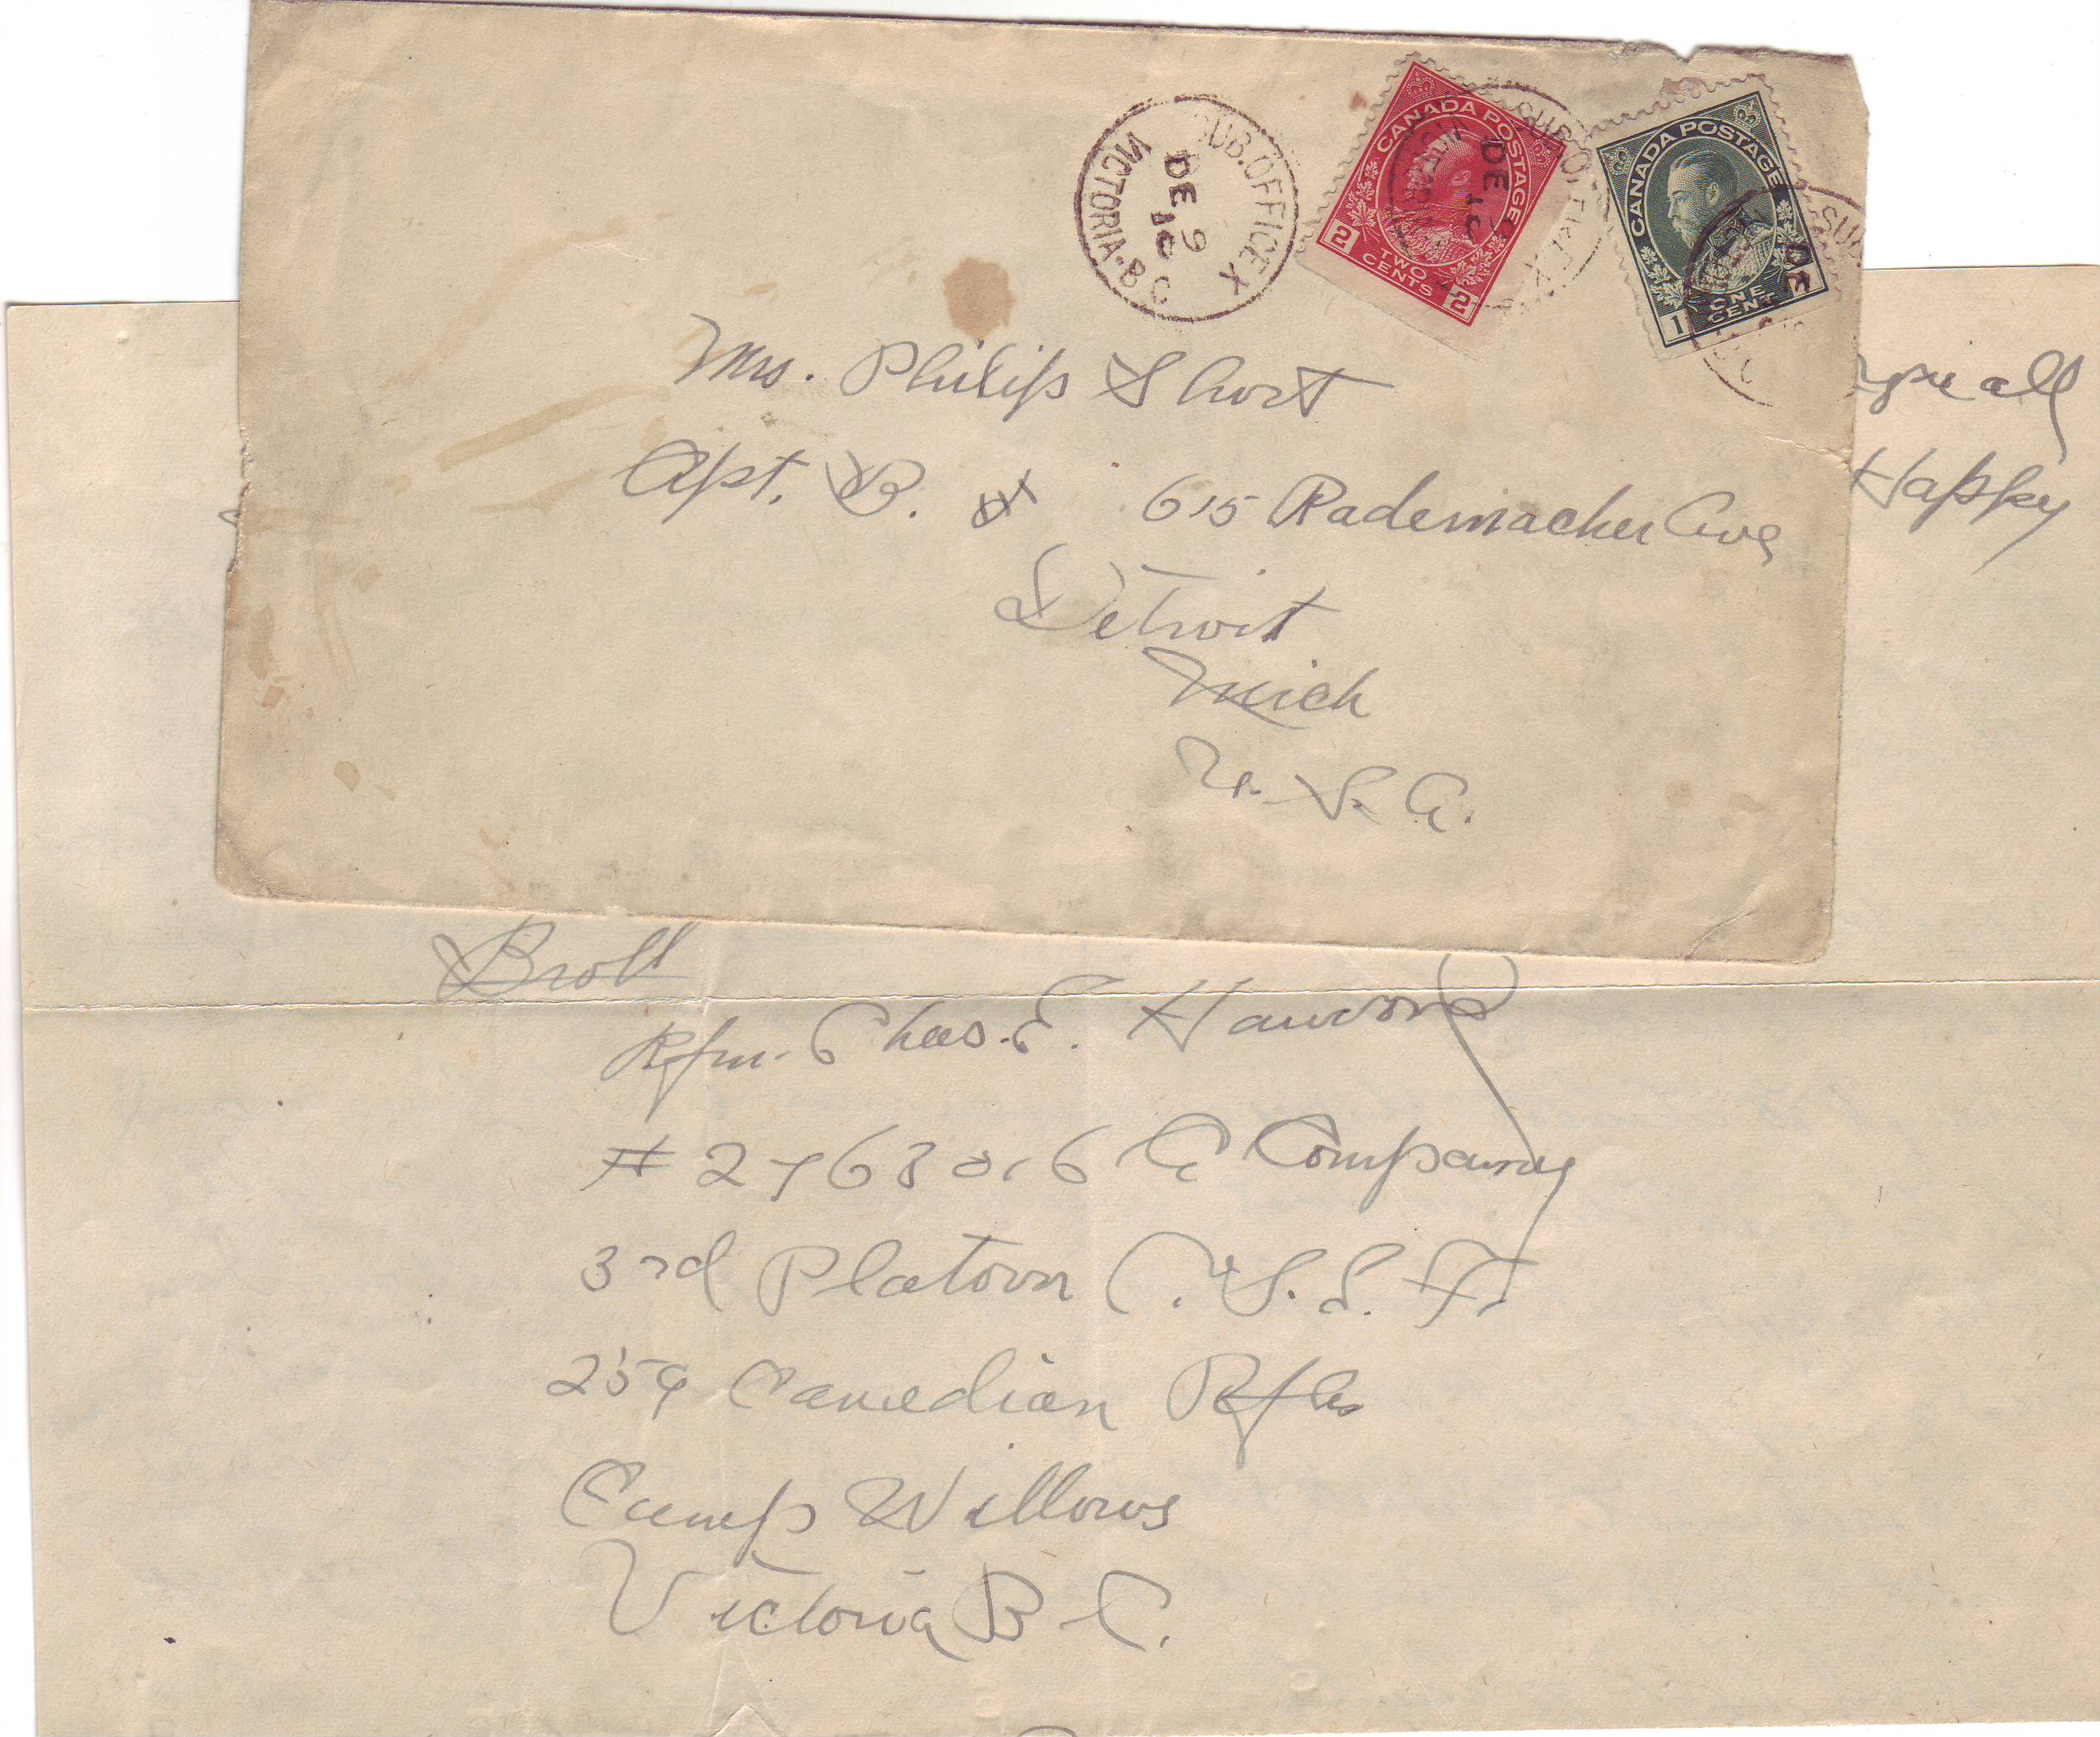 SUB. OFFICE X
DE 9
VICTORIA. B.C
CANADA POSTAGE
2 TWO CENTS 2
CANADA POSTAGE
1 ONE CENT
Mrs. Philip Short
Apt. B. 615 Rademacher Ave
Detroit
Mich
U. S. A.
all
Happy
Rfm. Chas. E.
# 2768016 Company
3rd Platoon C. S. E. F.
259 Canadian Rfles
Camp Willows
Victoria B C.